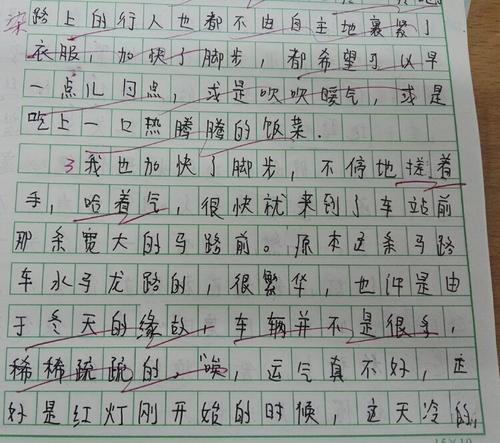 染路上的行人也都不由自主地裹紧了
衣服，加快了脚步，都希望可以早
一点儿回点，或是吹吹暖气，或是
吃上一口热腾腾的饭菜．
3我也加快了脚步，不停地搓着
手，哈着气，很快就来到了车站前
那条宽大的马路前。原本这条马路
车水马龙路的，很繁华，也许是由
于冬天的缘故，车辆并不是很多，
稀稀疏疏的。“唉，运气真不好，正
好是红灯刚开始的时候，这天冷的，
15×19